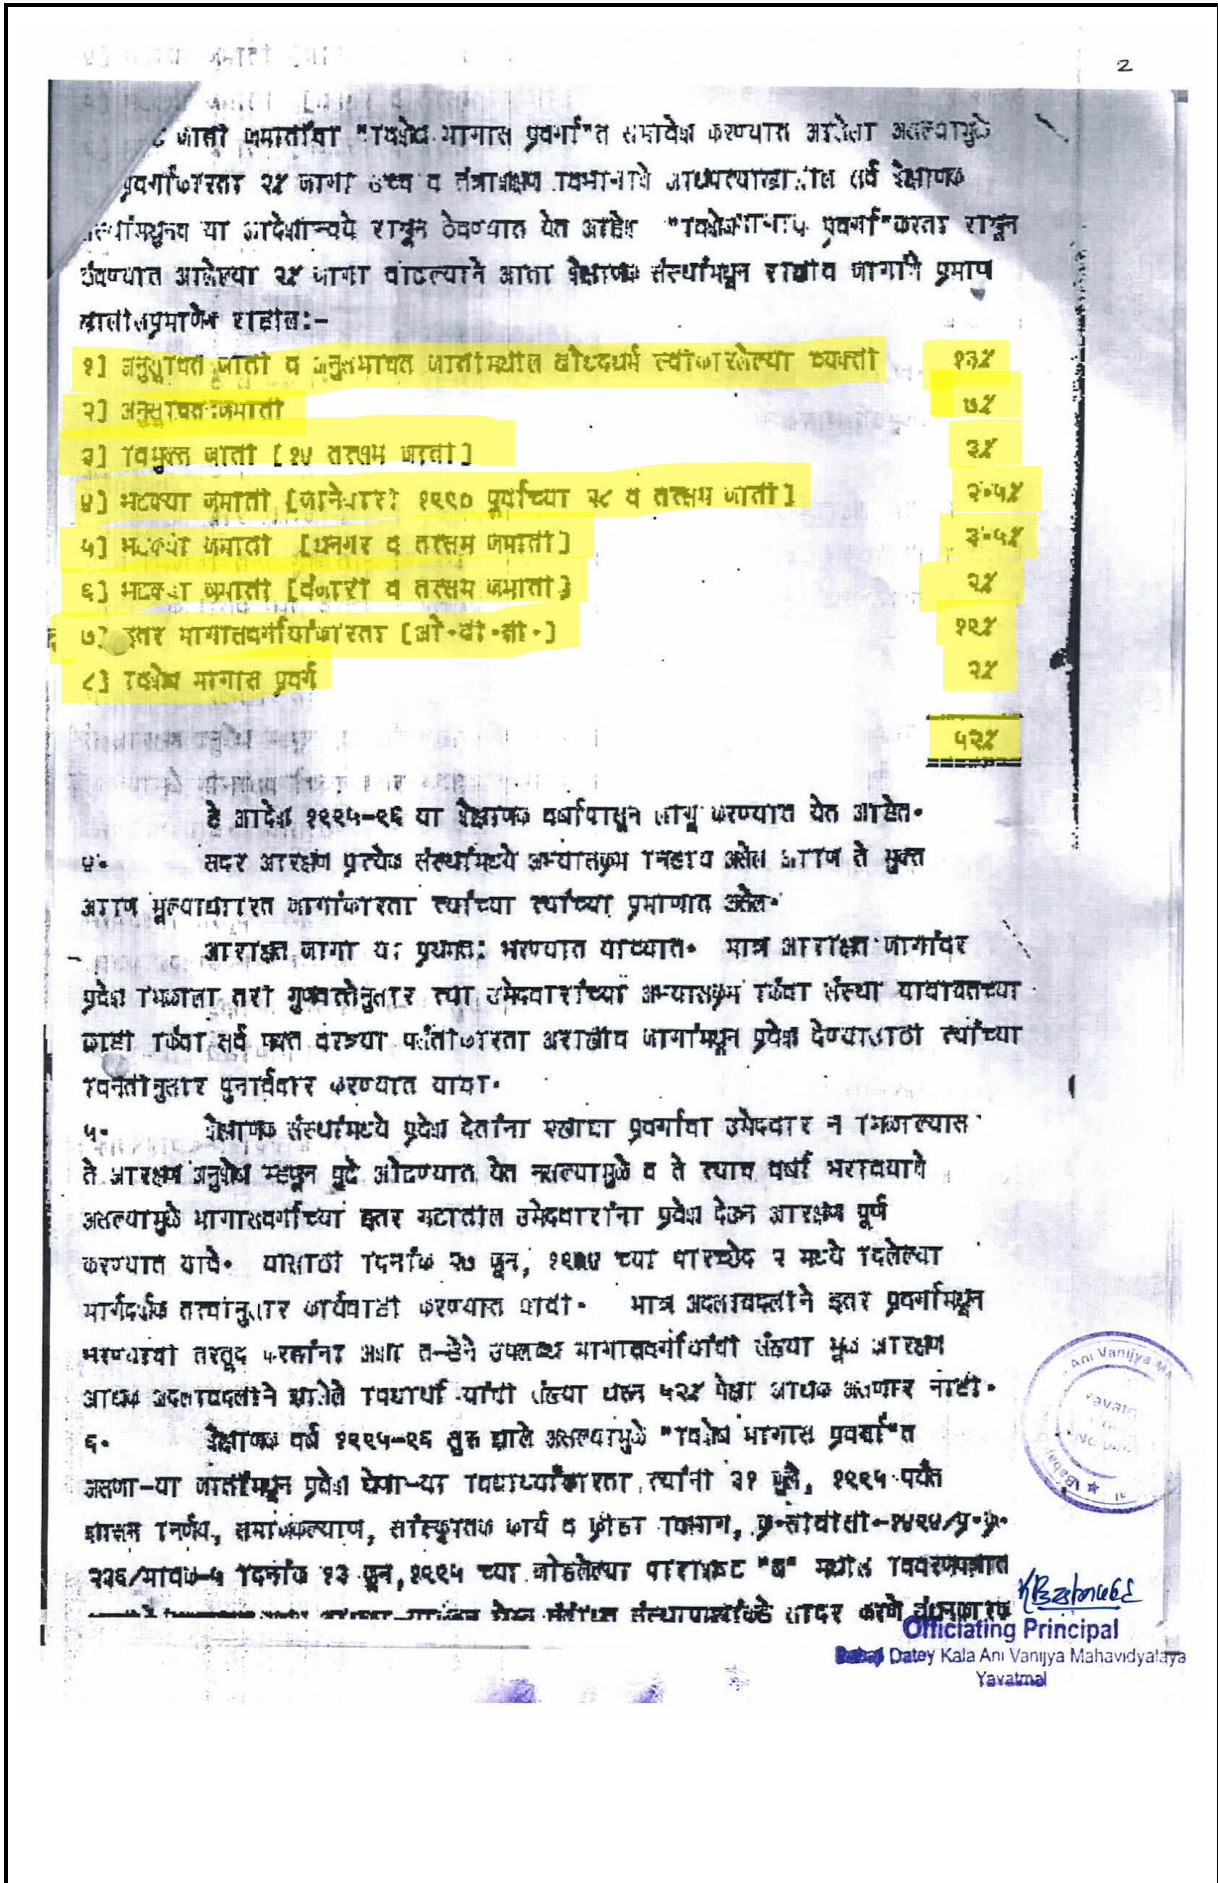 2
जाती जमातींचा "विशेष मागास प्रवर्गा"त समावेश करण्यात आलेला असल्यामुळे
२% जागा उच्च व तंत्रशिक्षण विभागाचे आधिपत्याखालील सर्व शैक्षणिक
या आदेशान्वये राखून ठेवण्यात येत आहेत "विशेष मागास प्रवर्गा"करिता राखून
ठेवण्यात आलेल्या २% जागा वाढल्याने आता शैक्षणिक संस्थांमधून राखीव जागांचे प्रमाण
खालीलप्रमाणे राहील:-
१] अनुसूचित जाती व अनुसूचित जातीमधील बौध्दधर्म स्वीकारलेल्या व्यक्ती १३%
२] अनुसूचित जमाती ७%
३] विमुक्त जाती [१४ तत्सम जाती] ३%
४] भटक्या जमाती [जानेवारी १९९० पूर्वीच्या २८ व तत्सम जाती] २.५%
५] भटक्या जमाती [धनगर व तत्सम जमाती] ३.५%
६] भटक्या जमाती [वंजारी व तत्सम जमाती] २%
७] इतर मागासवर्गीयांकरिता [ओ.बी.सी.] १९%
८] विशेष मागास प्रवर्ग २%
५२%
हे आदेश १९९५-९६ या शैक्षणिक वर्षापासून लागू करण्यात येत आहेत.
४. सदर आरक्षण प्रत्येक संस्थांमध्ये अभ्यासक्रम निहाय असेल आणि ते मुक्त
आणि मूल्याधारित जागांकरिता त्यांच्या त्यांच्या प्रमाणात असेल.
आरक्षित जागा या प्रथमतः भरण्यात याव्यात. मात्र आरक्षित जागांवर
प्रवेश मिळाला तरी गुणवत्तेनुसार त्या उमेदवारांच्या अभ्यासक्रम किंवा संस्था याबाबतच्या
काही किंवा सर्व फक्त वरच्या पसंतीकरिता अराखीव जागांमधून प्रवेश देण्यासाठी त्यांच्या
विनंतीनुसार पुनर्विचार करण्यात यावा.
५. शैक्षणिक संस्थांमध्ये प्रवेश देतांना एखाद्या प्रवर्गाचा उमेदवार न मिळाल्यास
ते आरक्षण अनुशेष म्हणून पुढे ओढण्यात येत नसल्यामुळे व ते त्याच वर्षी भरावयाचे
असल्यामुळे मागासवर्गाच्या इतर गटातील उमेदवारांना प्रवेश देऊन आरक्षण पूर्ण
करण्यात यावे. यासाठी दिनांक २७ जून, च्या परिच्छेद २ मध्ये दिलेल्या
मार्गदर्शक तत्वांनुसार कार्यवाही करण्यात यावी. मात्र अदलाबदलीने इतर प्रवर्गामधून
भरण्याची तरतूद करतांना अशा उपलब्ध मागासवर्गीयांची संख्या मूळ आरक्षण
अधिक अदलाबदलीने झालेले विद्यार्थी यांची संख्या धरून ५२% पेक्षा अधिक असणार नाही.
६. शैक्षणिक वर्ष १९९५-९६ सुरु झाले असल्यामुळे "विशेष मागास प्रवर्गा"त
असणा-या जातींमधून प्रवेश घेणा-या विद्यार्थ्यांकरिता त्यांनी ३१ जुलै, १९९५ पर्यंत
शासन निर्णय, समाजकल्याण, सांस्कृतिक कार्य व क्रीडा विभाग, क्र.सीबीसी-१४९४/प्र.क्र.
२३६/मावक-५ दिनांक १३ जून, १९९५ च्या जोडलेल्या परिशिष्ट "ब" मधील विवरणपत्रात
सादर करणे बंधनकारक
Officiating Principal
Babaji Datey Kala Ani Vanijya Mahavidyalaya
Yavatmal